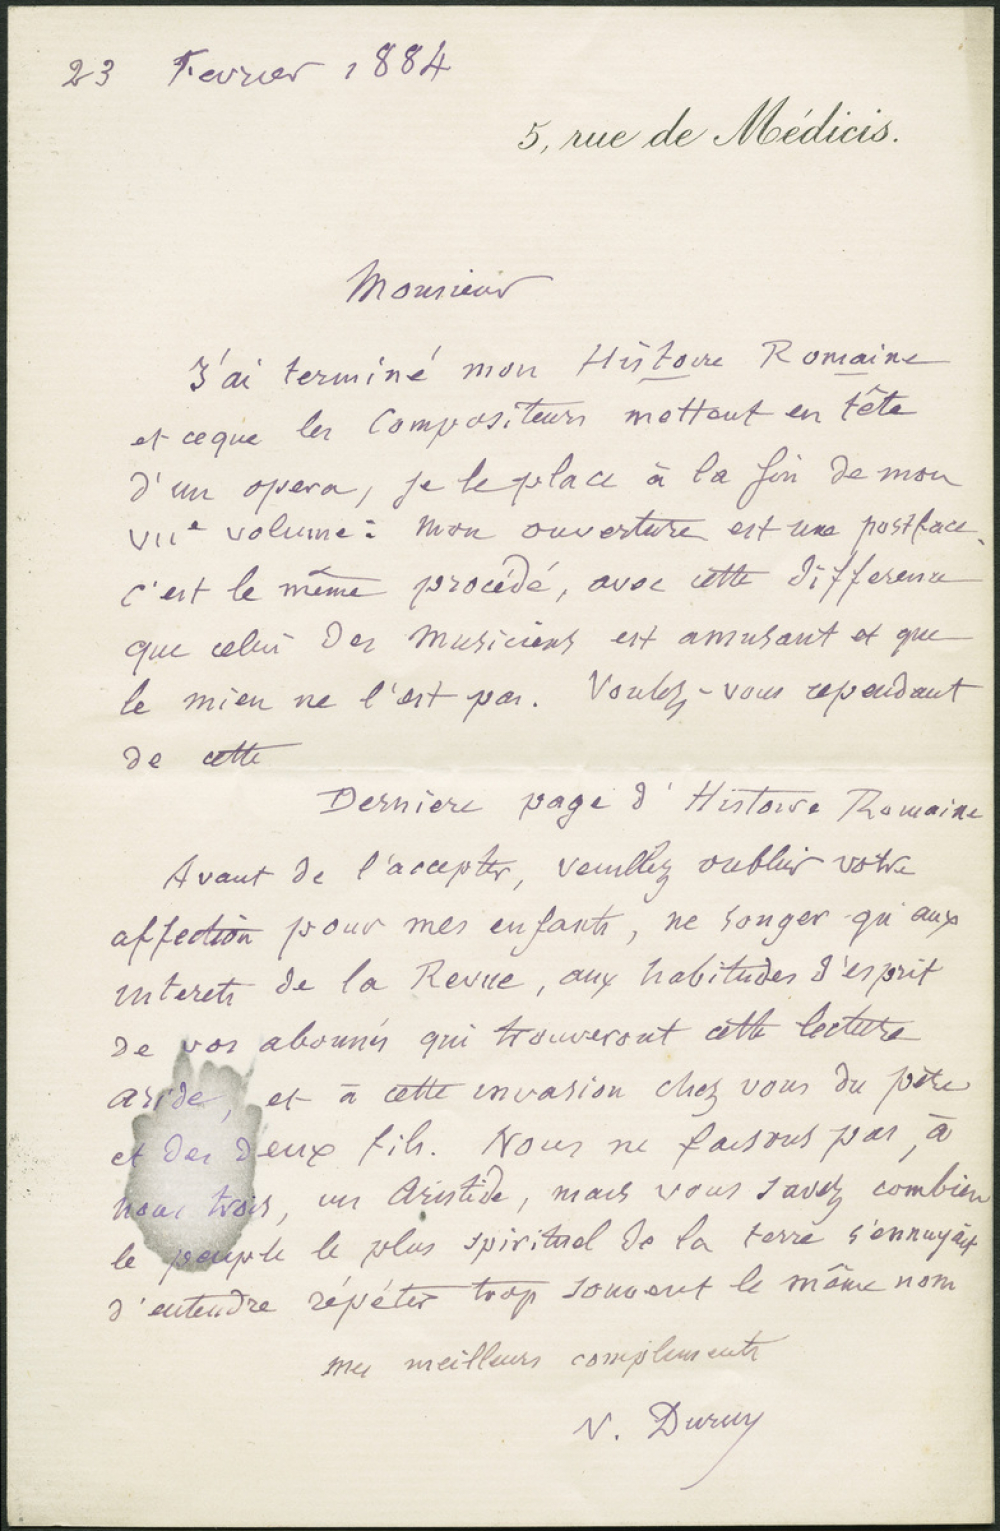 23 Fevrier 1884
5, rue de Médicis.
Monsieur
J'ai terminé mon Histoire Romaine
et ce que les Compositeurs mettent en tête
d'un opera, je le place à la fin de mon
VIIe volume : mon ouverture est une postface.
c'est le même procédé, avec cette difference
que celui des musiciens est amusant et que
le mien ne l'est pas. Voulez-vous cependant
de cette
Derniere page d'Histoire Romaine
Avant de l'accepter, veuillez oublier votre
affection pour mes enfants, ne songer qu'aux
interets de la Revue, aux habitudes d'esprit
de vos abonnés qui trouveront cette lecture
aride, et à cette invasion chez vous du père
et des deux fils. Nous ne faisons pas, à
nous trois, un Aristide, mais vous savez combien
le peuple le plus spirituel de la terre s'ennuyait
d'entendre répéter trop souvent le même nom
mes meilleurs compliments
V. Duruy